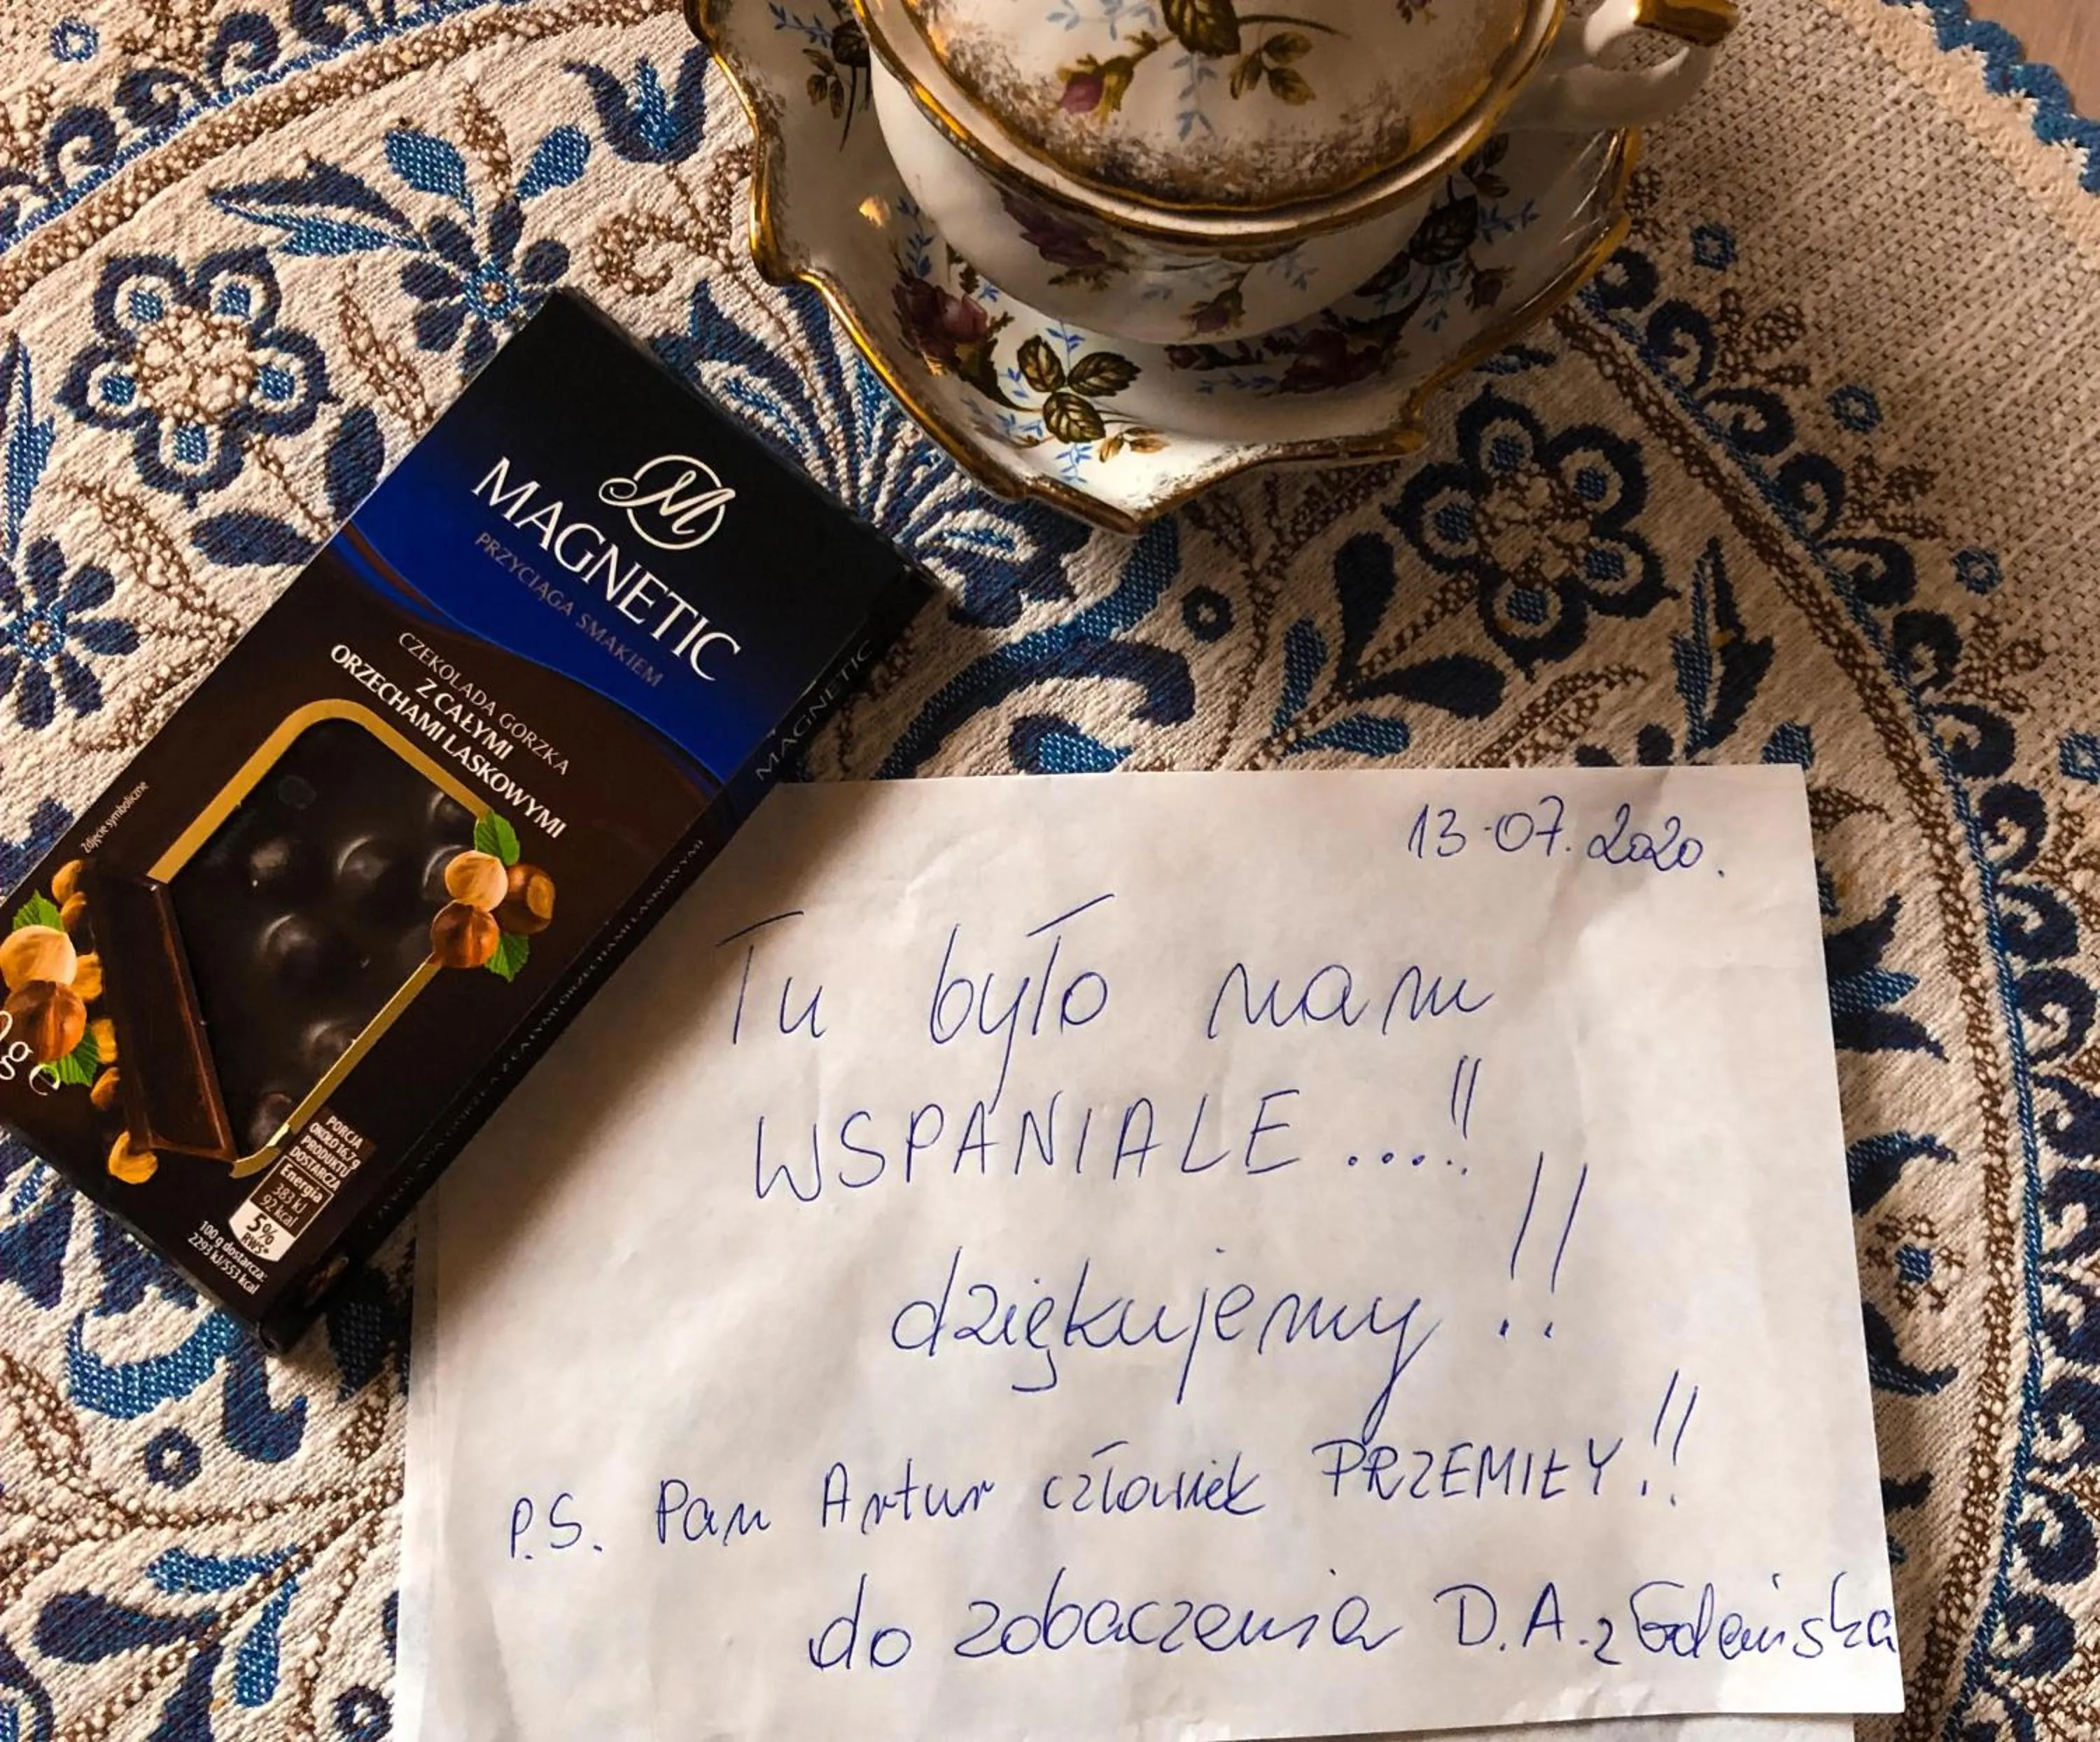 M
MAGNETIC
PRZYCIĄGA SMAKIEM
CZEKOLADA GORZKA
Z CAŁYMI
ORZECHAMI LASKOWYMI
Zdjęcie symboliczne
PORCJA
OKOŁO 16,7 g
PRODUKTU
DOSTARCZA
Energia
383 kJ
92 kcal
5%
RWS*
100 g dostarcza:
2293 kJ/553 kcal
MAGNETIC
CZEKOLADA GORZKA Z CAŁYMI ORZECHAMI LASKOWYMI
13.07.2020.
Tu było nam
WSPANIALE....!!
dziękujemy!!
P.S. Pan Artur człowiek PRZEMIŁY!!
do zobaczenia D.A. z Gdańska